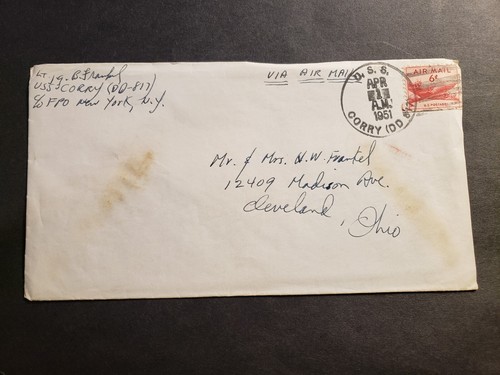 Lt jg. B. Frankel
USS CORRY (DD-817)
c/o FPO New York, N.Y.
VIA AIR MAIL
U. S. S.
APR
A.M.
1951
CORRY (DD 817)
AIR MAIL
6¢
Mr. & Mrs. H. W. Frankel
12409 Madison Ave.
Cleveland, Ohio